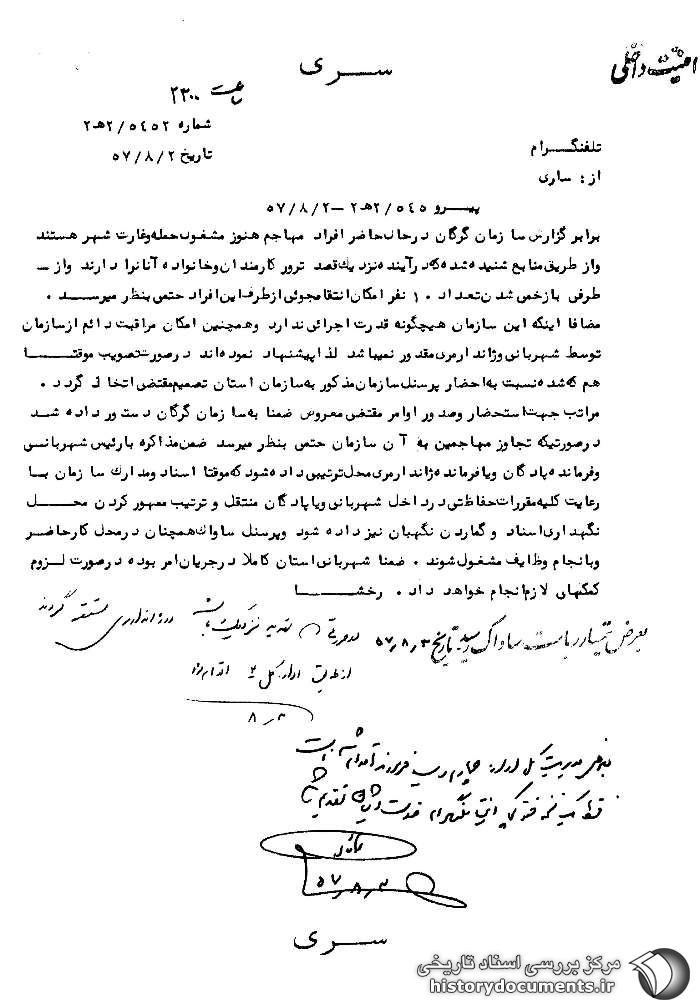 امنیت داخلی
سـری
ساعت ۲۳۰۰
شماره ۲/۵٤۵۲هـ۲
تاریخ ۵۷/۸/۲
تلفنگرام
از: ساری
پیـرو ۲/۵٤۵هـ۲ – ۵۷/۸/۲
برابر گزارش سازمان گرگان درحال حاضر افراد مهاجم هنوز مشغول حمله وغارت شهر هستند
واز طریق منابع شنیده شده که درآینده نزدیک قصد ترور کارمندان وخانواده آنانرا دارند واز ـ
طرفی بازخمی شدن تعداد ۱۰ نفر امکان انتقامجوئی از طرف این افراد حتمی بنظر میرسـد .
مضافا اینکه این سازمان هیچگونه قدرت اجرائی ندارد وهمچنین امکان مراقبت دائم ازسازمان
توسط شهربانی وژاندارمری مقدور نمیباشد لذا پیشنهاد نموده اند درصورت تصویب موقتـا
هم که شده نسبت به احضار پرسنل سازمان مذکور به سازمان استان تصمیم مقتضی اتخاذ گردد .
مراتب جهت استحضار وصدور اوامر مقتضی معروض ضمنا به سازمان گرگان دستور داده شـد
درصورتیکه تجاوز مهاجمین به آن سازمان حتمی بنظر میرسد ضمن مذاکره بارئیس شهربانـی
وفرمانده پادگان ویا فرمانده ژاندارمری محل ترتیبی داده شود که موقتا اسناد ومدارک سازمان بـا
رعایت کلیه مقررات حفاظتی درداخل شهربانی ویا پادگان منتقل و ترتیب ممهور کردن محـل
نگهداری اسناد و گماردن نگهبان نیز داده شود وپرسنل ساواک همچنان درمحل کارحاضر
وبانجام وظایف مشغول شوند . ضمنا شهربانی استان کاملا درجریان امر بوده درصورت لـزوم
کمکهای لازم انجام خواهد داد . رخشـا
بعرض تیمسار ریاست ساواک رسید تاریخ ۵۷/۸/۳
در ژاندارمری مستقر گردند
از طریق اداره کل ۴ اقدام
۸/۳
بعرض مدیریت کل اداره چهارم رسید فرمودند اقدام شده است
۵۷/۸/۳
سـری
مرکز بررسی اسناد تاریخی
historydocuments.ir